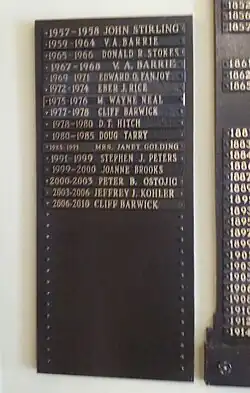 1957-1958 JOHN STIRLING
1959-1964 V.A. BARRIE
1965-1966 DONALD R. STOKES
1967-1968 V.A. BARRIE
1969-1971 EDWARD O. FANJOY
1972-1974 EBER J. RICE
1975-1976 M. WAYNE NEAL
1977-1978 CLIFF BARWICK
1978-1980 D.T. HITCH
1980-1985 DOUG TARRY
1985-1991 MRS. JANET GOLDING
1991-1999 STEPHEN J. PETERS
1999-2000 JOANNE BROOKS
2000-2003 PETER B. OSTOJIC
2003-2006 JEFFREY J. KOHLER
2006-2010 CLIFF BARWICK